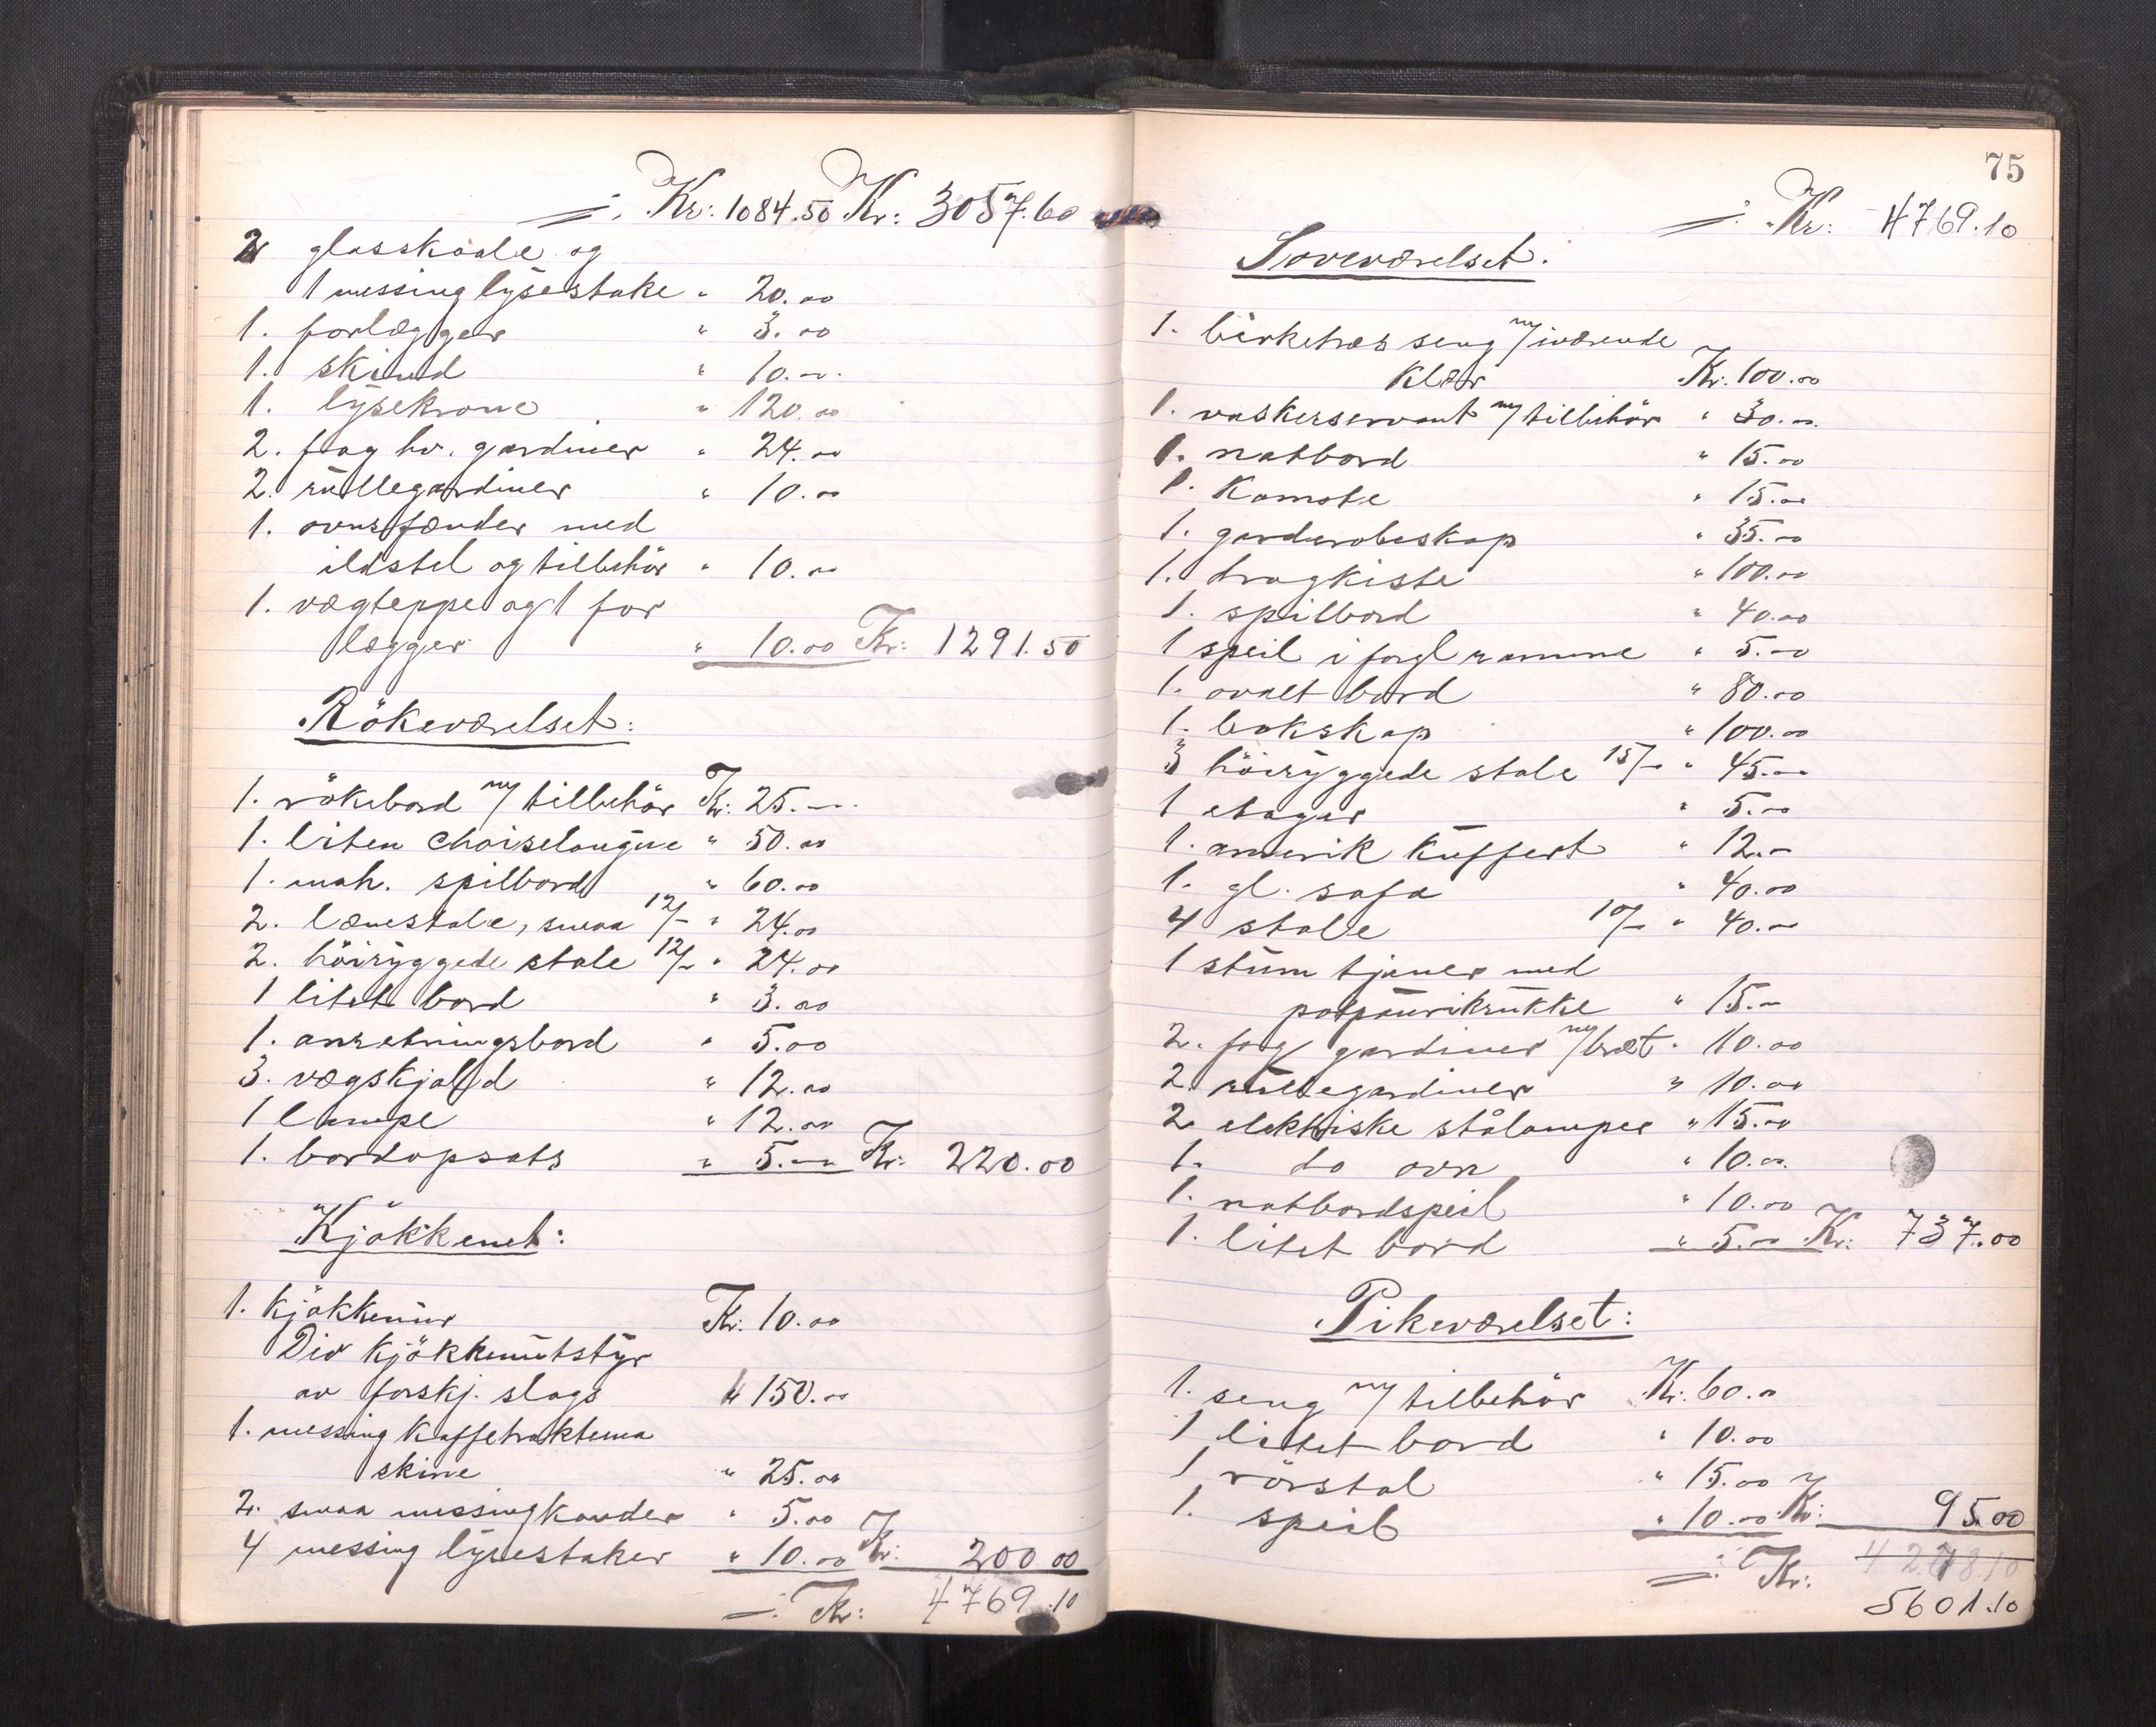 =: Kr: 1084.50 Kr: 3057.60
2 glasskaale og
1 messing lysestake " 20.00
1. forlægger " 3.00
1. skind " 10.-
1. lysekrone " 120.00
2. fag hv. gardiner " 24.00
2. rullegardiner " 10.00
1. ovnsfænder med
ildstel og tilbehör " 10.00
1. vægteppe og 1 for
lægger " 10.00 Kr: 1291.50
Rökeværelset:
1. rökebord m/ tilbehör Kr: 25.-
1. liten Chaiselongue " 50.00
1. mah. spilbord " 60.00
2. lænestole, smaa 12/- " 24.00
2. höiryggede stole 12/- " 24.00
1 litet bord " 3.00
1. anretningsbord " 5.00
3. vægskjold " 12.00
1 lampe " 12.00
1. bordopsats " 5.- Kr: 220.00
Kjökkenet:
1. Kjökkenur Kr: 10.00
Div Kjökkenutstyr
av forskj. slags " 150.00
1. messing Kaffetraktema
skine " 25.00
2. smaa messingkander " 5.00
4 messing lysestaker " 10.00 Kr: 200.00
=: Kr: 4769.10
75
=: Kr: 4769.10
Soveværelset:
1. birketræs seng m/ iværende
Klær Kr. 100.00
1. vaskerservant m/ tilbehör " 30.00
1. natbord " 15.00
1. Komode " 15.00
1. garderobeskap " 35.00
1. dragkiste " 100.00
1. spilbord " 40.00
1 speil i forgl ramme " 5.00
1. ovalt bord " 80.00
1. bokskap " 100.00
3 höiryggede stole 15/- " 45.00
1 etager " 5.00
1. amerik Kuffert " 12.-
1. gl. sofa " 40.00
4 stole 10/- " 40.00
1 stum tjener med
potpourikrukke " 15.-
2. fag gardiner m/ bræt " 10.00
2 rullegardiner " 10.00
2 elektriske stålamper " 15.00
1. do ovn " 10.00
1. natbordspeil " 10.00
1. litet bord " 5.00 Kr: 737.00
Pikeværelset:
1. seng m/ tilbehör Kr. 60.00
1 litet bord " 10.00
1 rörstol " 15.00
1. speil " 10.00 Kr: 95.00
=: Kr: 5601.10